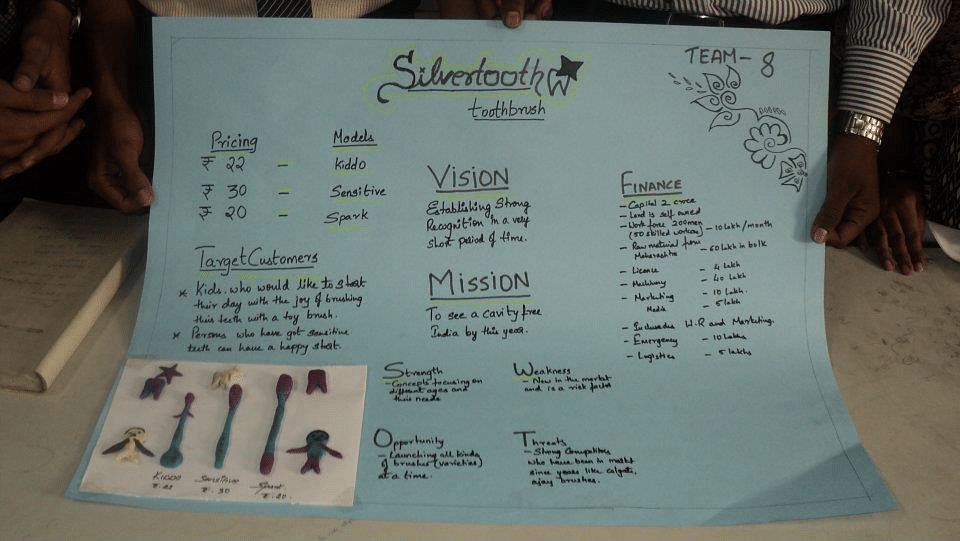 Silvertooth
toothbrush
TEAM - 8
Pricing Models
₹ 22 - Kiddo
₹ 30 - Sensitive
₹ 20 - Spark
Target Customers
* Kids who would like to start
their day with the joy of brushing
their teeth with a toy brush.
* Persons who have got sensitive
teeth can have a happy start.
VISION
Establishing Strong
Recognition in a very
short period of time.
MISSION
To see a cavity free
India by this year.
FINANCE
- Capital 2 crore
- Land is self owned
- Work force 200 men
(50 skilled workers) - 10 lakh/month
- Raw material from
Maharashtra - 60 lakh in bulk
- Licence - 4 lakh
- Machinery - 40 lakh
- Marketing - 10 lakh.
Media - 5 lakh
- Includes H.R and Marketing.
- Emergency - 10 lakhs
- Logistics - 5 lakhs
Strength
- Concepts focusing on
different ages and
their needs
Weakness
- New in the market
and is a risk factor
Opportunity
- Launching all kinds
of brushes (varieties)
at a time.
Threats
- Strong Competitors
who have been in markt
since years like colgate,
ajay brushes.
KIDDO Sensitive Spark
₹. 22 ₹. 30 ₹. 20.